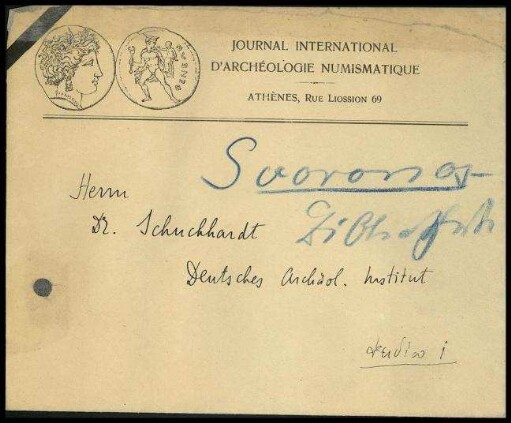 JOURNAL INTERNATIONAL
D'ARCHÉOLOGIE NUMISMATIQUE
ATHÈNES, RUE LIOSSION 69
Svoronos-
Herrn
Dr. Schuchhardt
Deutsches Archäol. Institut